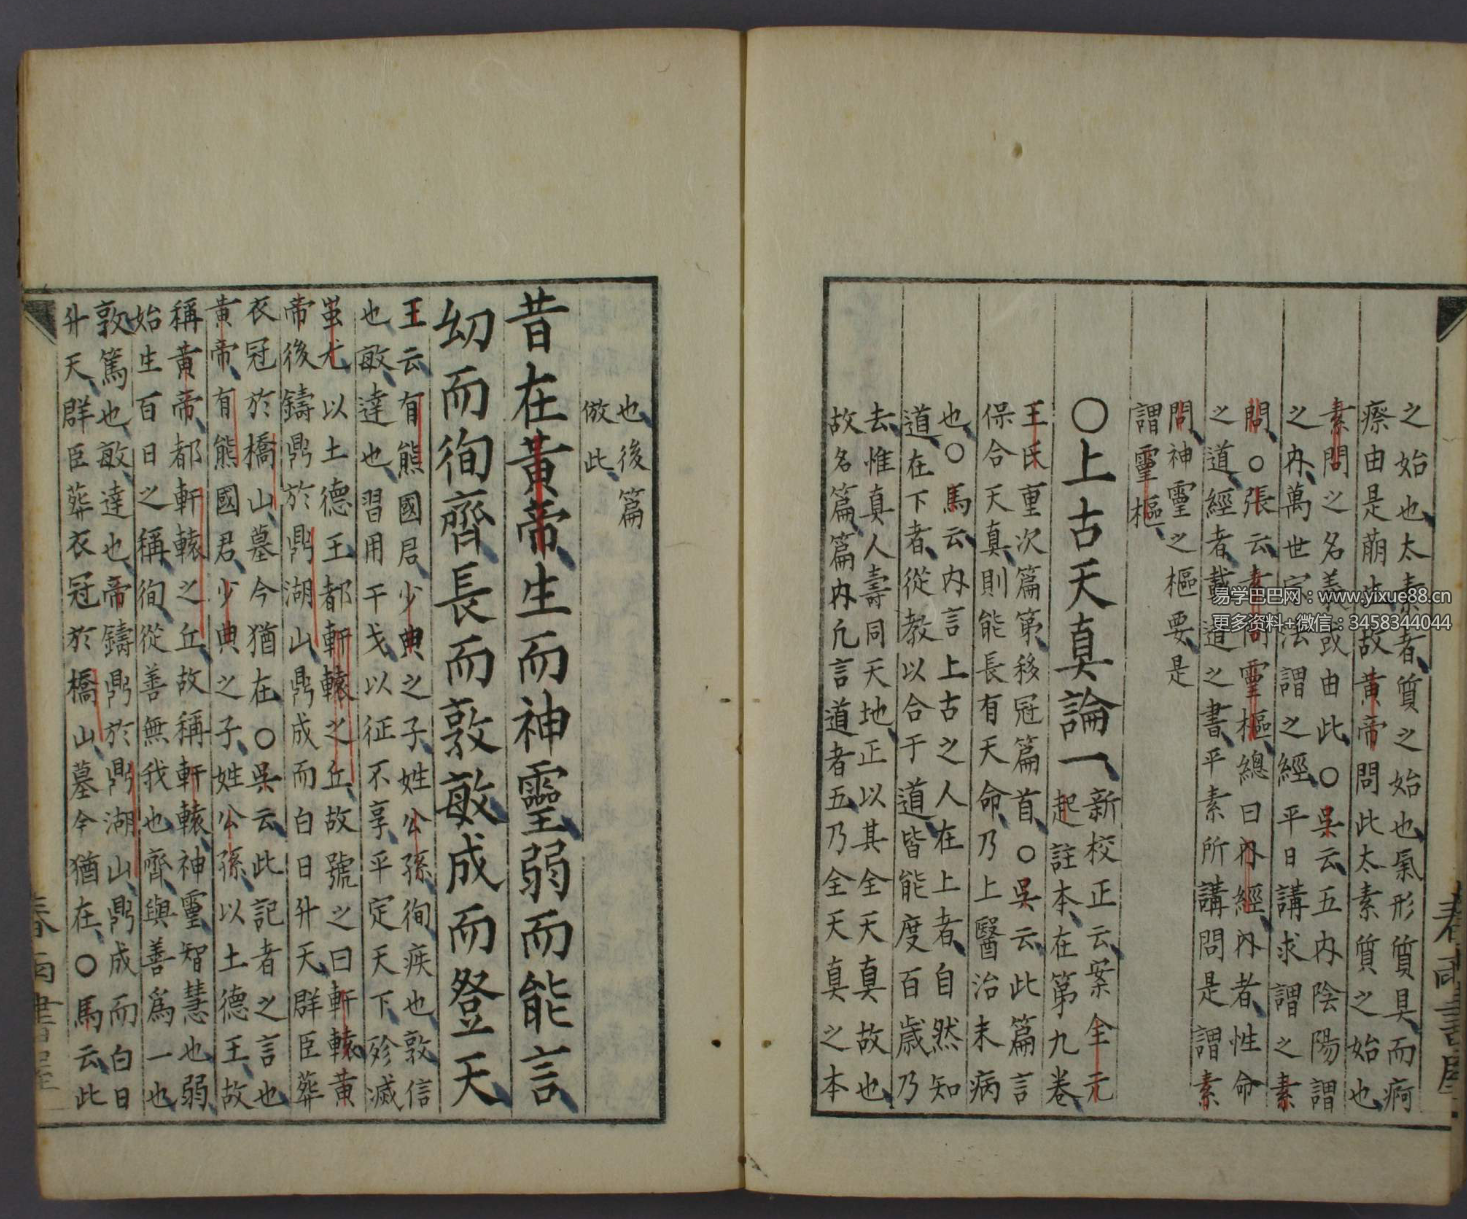 之始也太素者質之始也氣形質具而痾
瘵由是萠生故黃帝問此太素質之始也
素問之名義或由此○吳云五內陰陽謂
之內萬世宗法謂之經平日講求謂之素
問○張云素問靈樞總曰內經內者性命
之道經者載道之書平素所講問是謂素
問神靈之樞要是
謂靈樞
○上古天真論一
新校正云案全元
起註本在第九卷
王氏重次篇第移冠篇首○吳云此篇言
保合天真則能長有天命乃上醫治未病
也○馬云內言上古之人在上者自然知
道在下者從教以合于道皆能度百歲乃
去惟真人壽同天地正以其全天真故也
故名篇篇內凢言道者五乃全天真之本
也後篇
倣此
昔在黃帝生而神靈弱而能言
幼而徇齊長而敦敏成而登天
王云有熊國君少典之子姓公孫徇疾也敦信
也敏達也習用干戈以征不享平定天下殄滅
蚩尤以土德王都軒轅之丘故號之曰軒轅黃
帝後鑄鼎於鼎湖山鼎成而白日升天群臣葬
衣冠於橋山墓今猶在○吳云此記者之言也
黃帝有熊國君少典之子姓公孫以土德王故
稱黃帝都軒轅之丘故稱軒轅神靈智慧也弱
始生百日之稱徇從善無我也齊與善爲一也
敦篤也敏達也帝鑄鼎於鼎湖山鼎成而白日
升天群臣葬衣冠於橋山墓今猶在○馬云此
易学巴巴网：www.yixue88.cn
更多资料+微信：3458344044